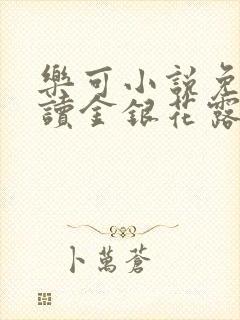 樂可小說免
讀金銀花露
卜萬蒼